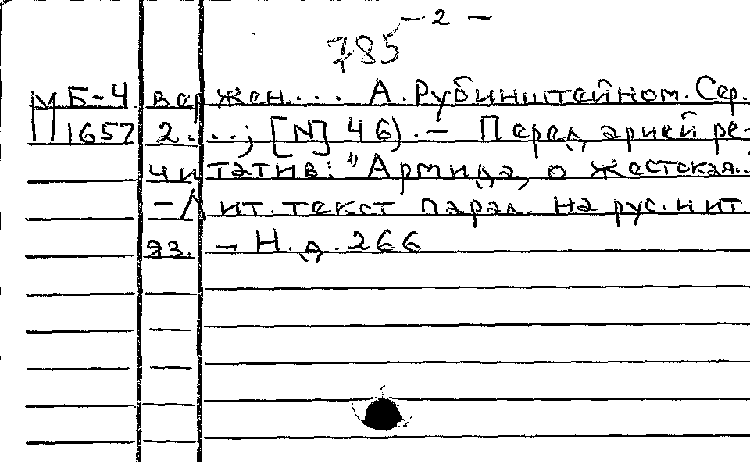 - 2 -
785
М Б-4 вержен.... А. Рубинштейном. Сер.
1657 2....; [N] 46). - Перед арией ре-
читатив: "Армида, о жестокая..
- Лит. текст парал. на рус. и ит.
яз. - Н.д. 266